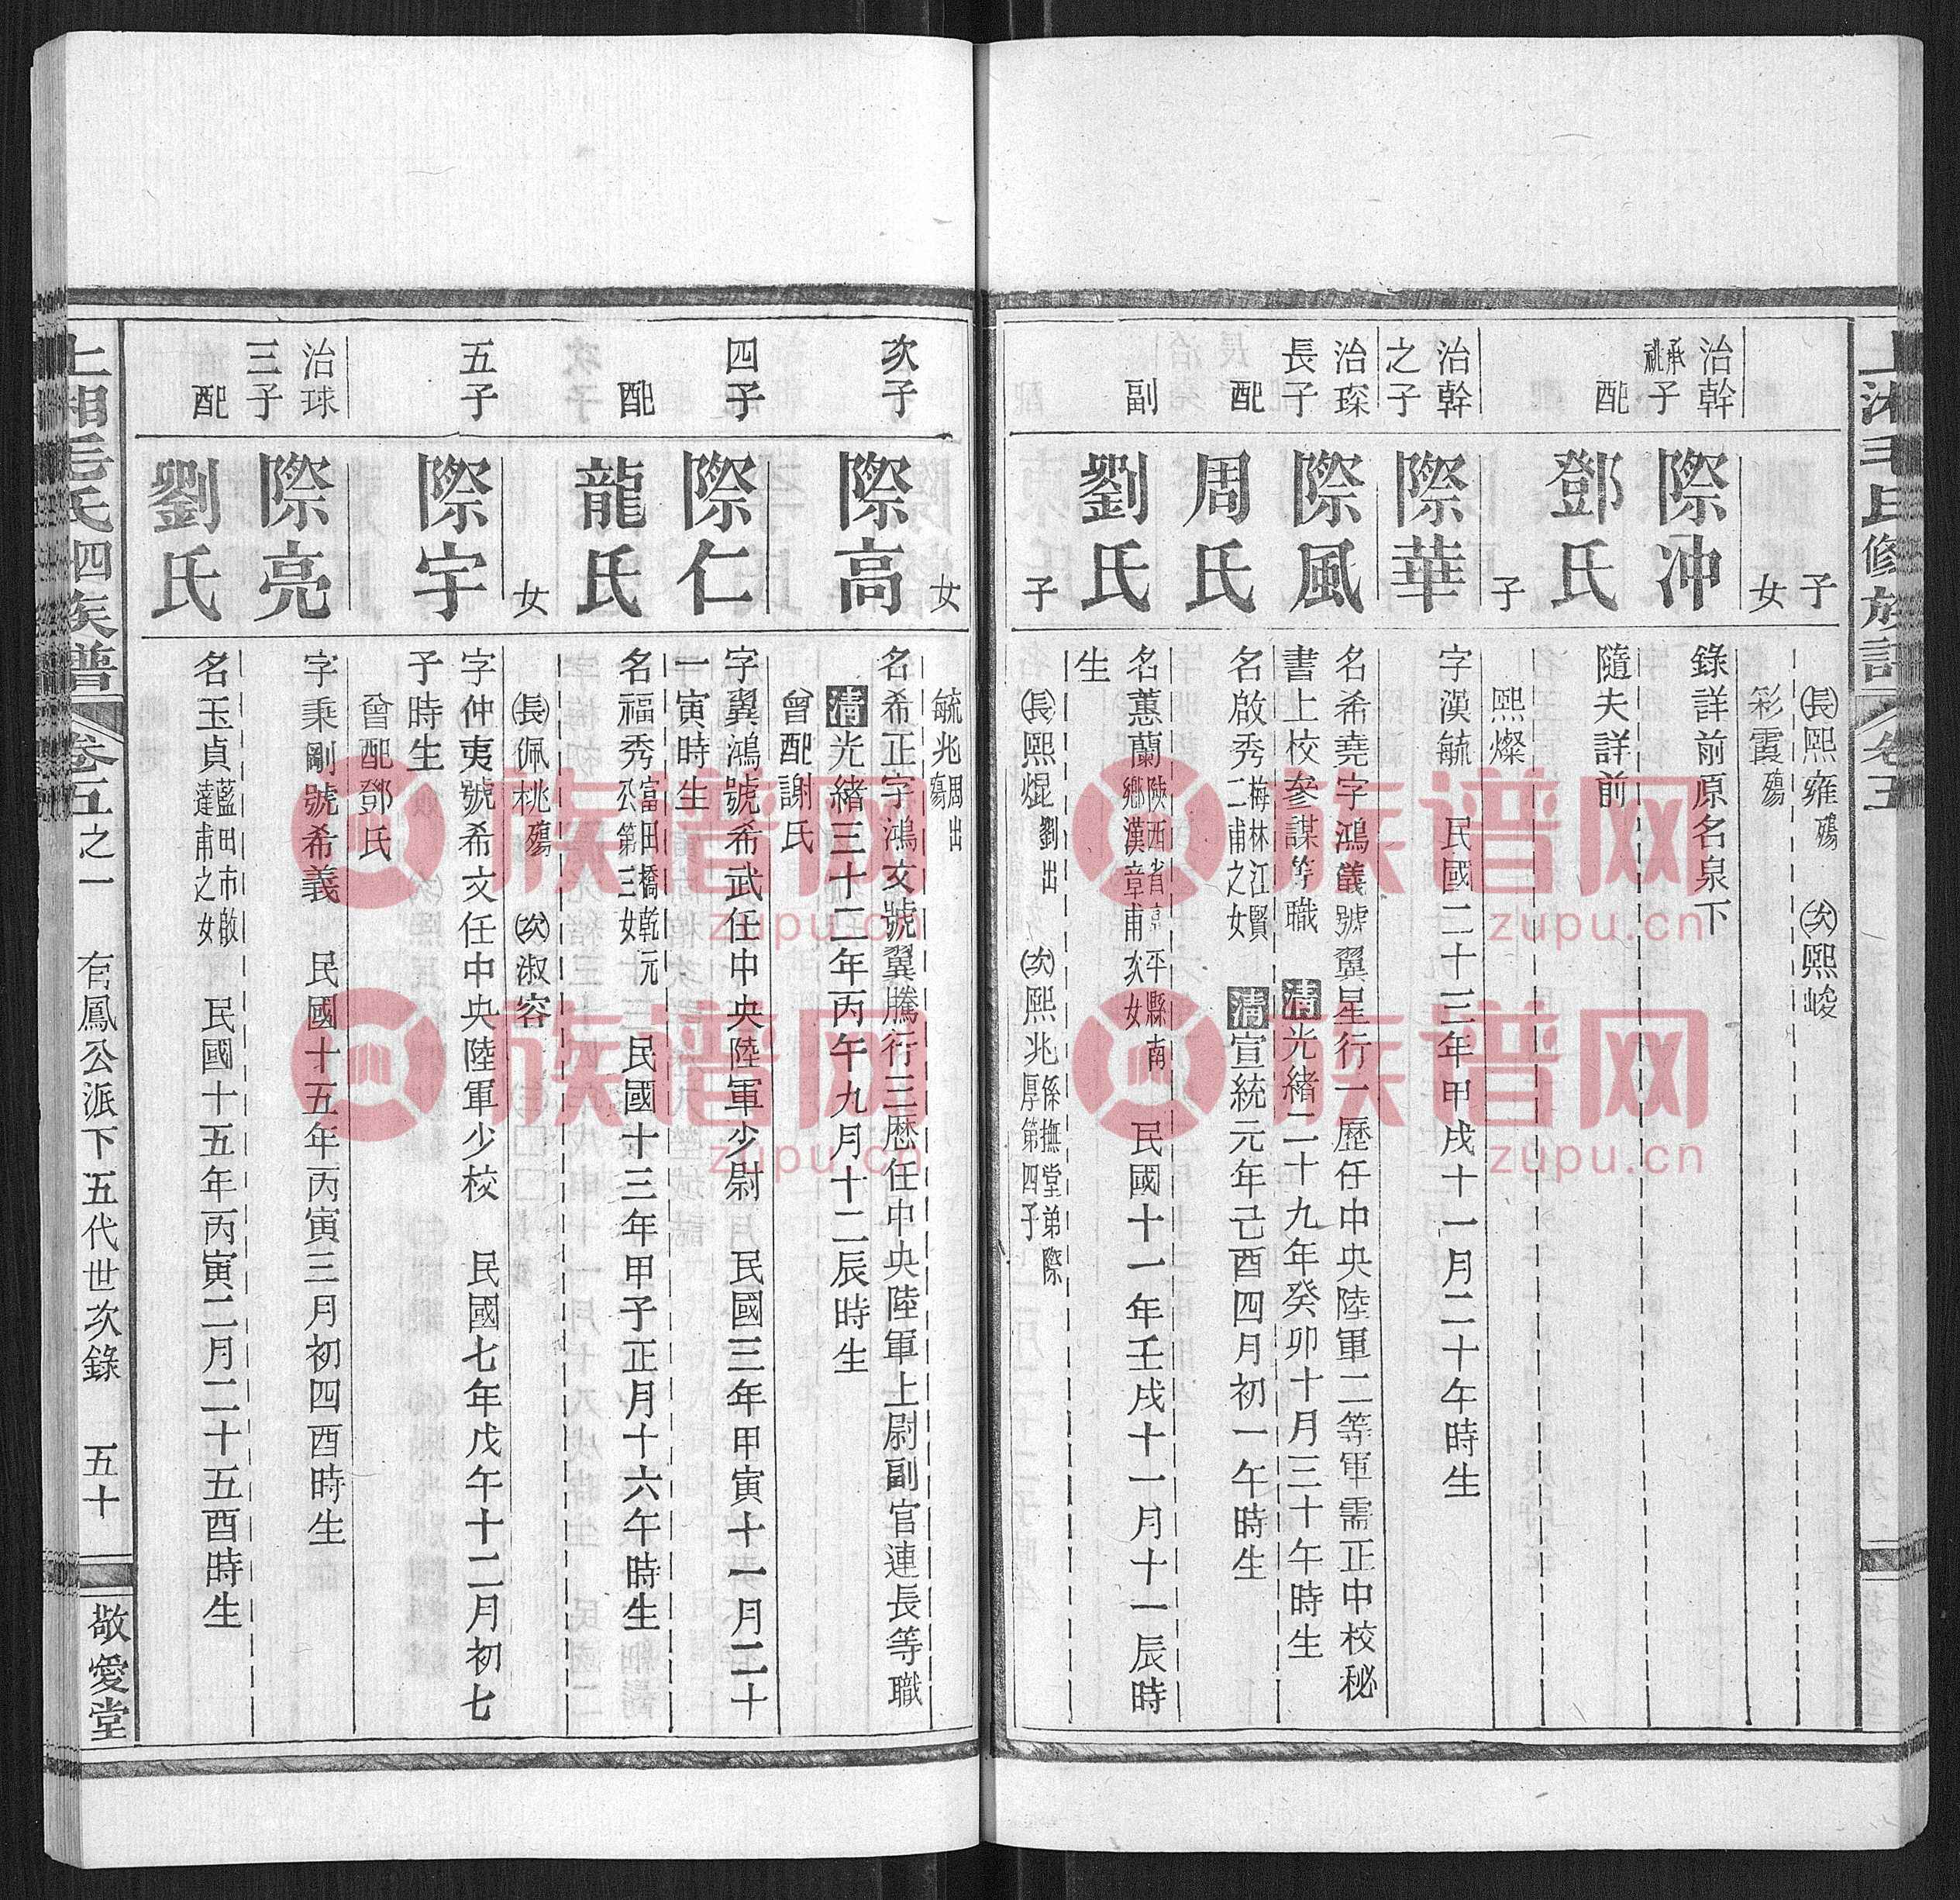 子
長熙雍殤 次熙峻
女
彩霞殤
治幹承祧子
際冲
錄詳前原名泉下
配
鄧氏
隨夫詳前
子
熙燦
治幹之子
際華
字漢毓 民國二十三年甲戌十一月二十午時生
治琛長子
際風
名希堯字鴻儀號翼星行一歷任中央陸軍二等軍需正中校秘
書上校參謀等職 清光緒二十九年癸卯十月三十午時生
配
周氏
名啟秀梅林江賢二甫之女 清宣統元年己酉四月初一午時生
副
劉氏
名蕙蘭陝西省京平縣南鄉漢章甫次女 民國十一年壬戌十一月十一辰時
生
子
長熙焜劉出 次熙兆係撫堂弟際厚第四子
女
毓兆周出殤
次子
際高
名希正字鴻文號翼騰行三歷任中央陸軍上尉副官連長等職
清光緒三十二年丙午九月十二辰時生
曾配謝氏
四子
際仁
字翼鴻號希武任中央陸軍少尉 民國三年甲寅十一月二十
一寅時生
配
龍氏
名福秀富田橋乾元公第三女 民國十三年甲子正月十六午時生
女
長佩桃殤 次淑容
五子
際宇
字仲夷號希文任中央陸軍少校 民國七年戊午十二月初七
子時生
曾配鄧氏
治球三子
際亮
字秉剛號希義 民國十五年丙寅三月初四酉時生
配
劉氏
名玉貞藍田市啟達甫之女 民國十五年丙寅二月二十五酉時生
上湘毛氏四修族譜 卷五之一 有鳳公派下五代世次錄 五十 敬愛堂
族谱网
zupu.cn
族谱网
zupu.cn
族谱网
zupu.cn
族谱网
zupu.cn